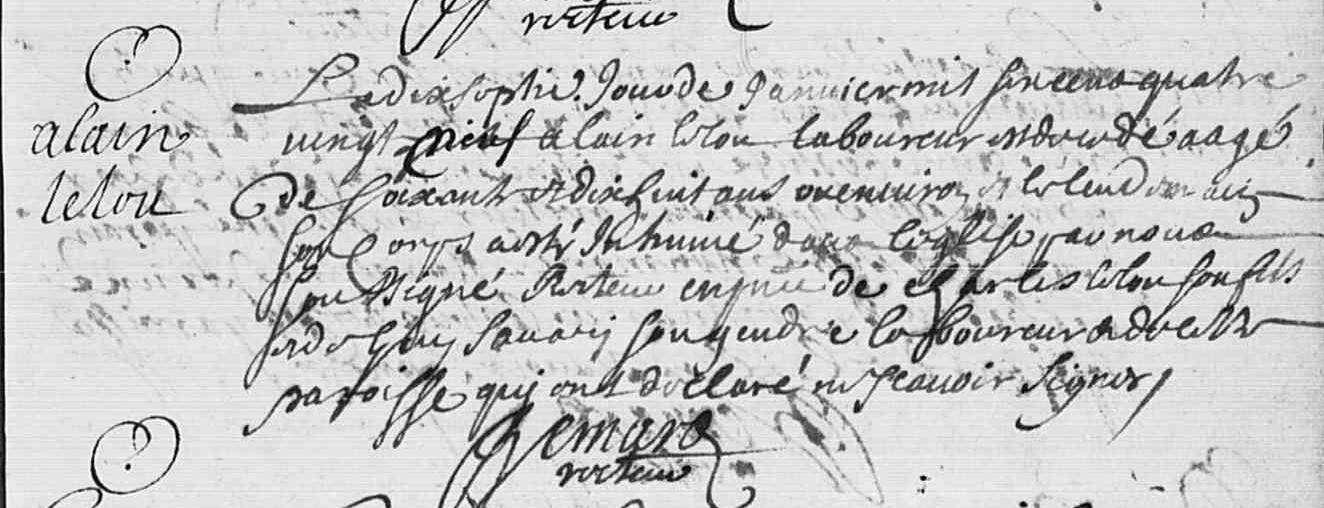 recteur
Le dixseptie. Jour de Januier mil six cens quatre
alain
uingt neuf alain lelou laboureur est decedé aagé
lelou
de soixante et dix huit ans ou enuiron et le lendemain
son Corps a esté Inhumé dans leglise par nous
soussigné Recteur en pnce de charles lelou son fils
et de sauari son gendre laboureurs de cette
paroisse qui ont declaré ne scauoir signer
recteur